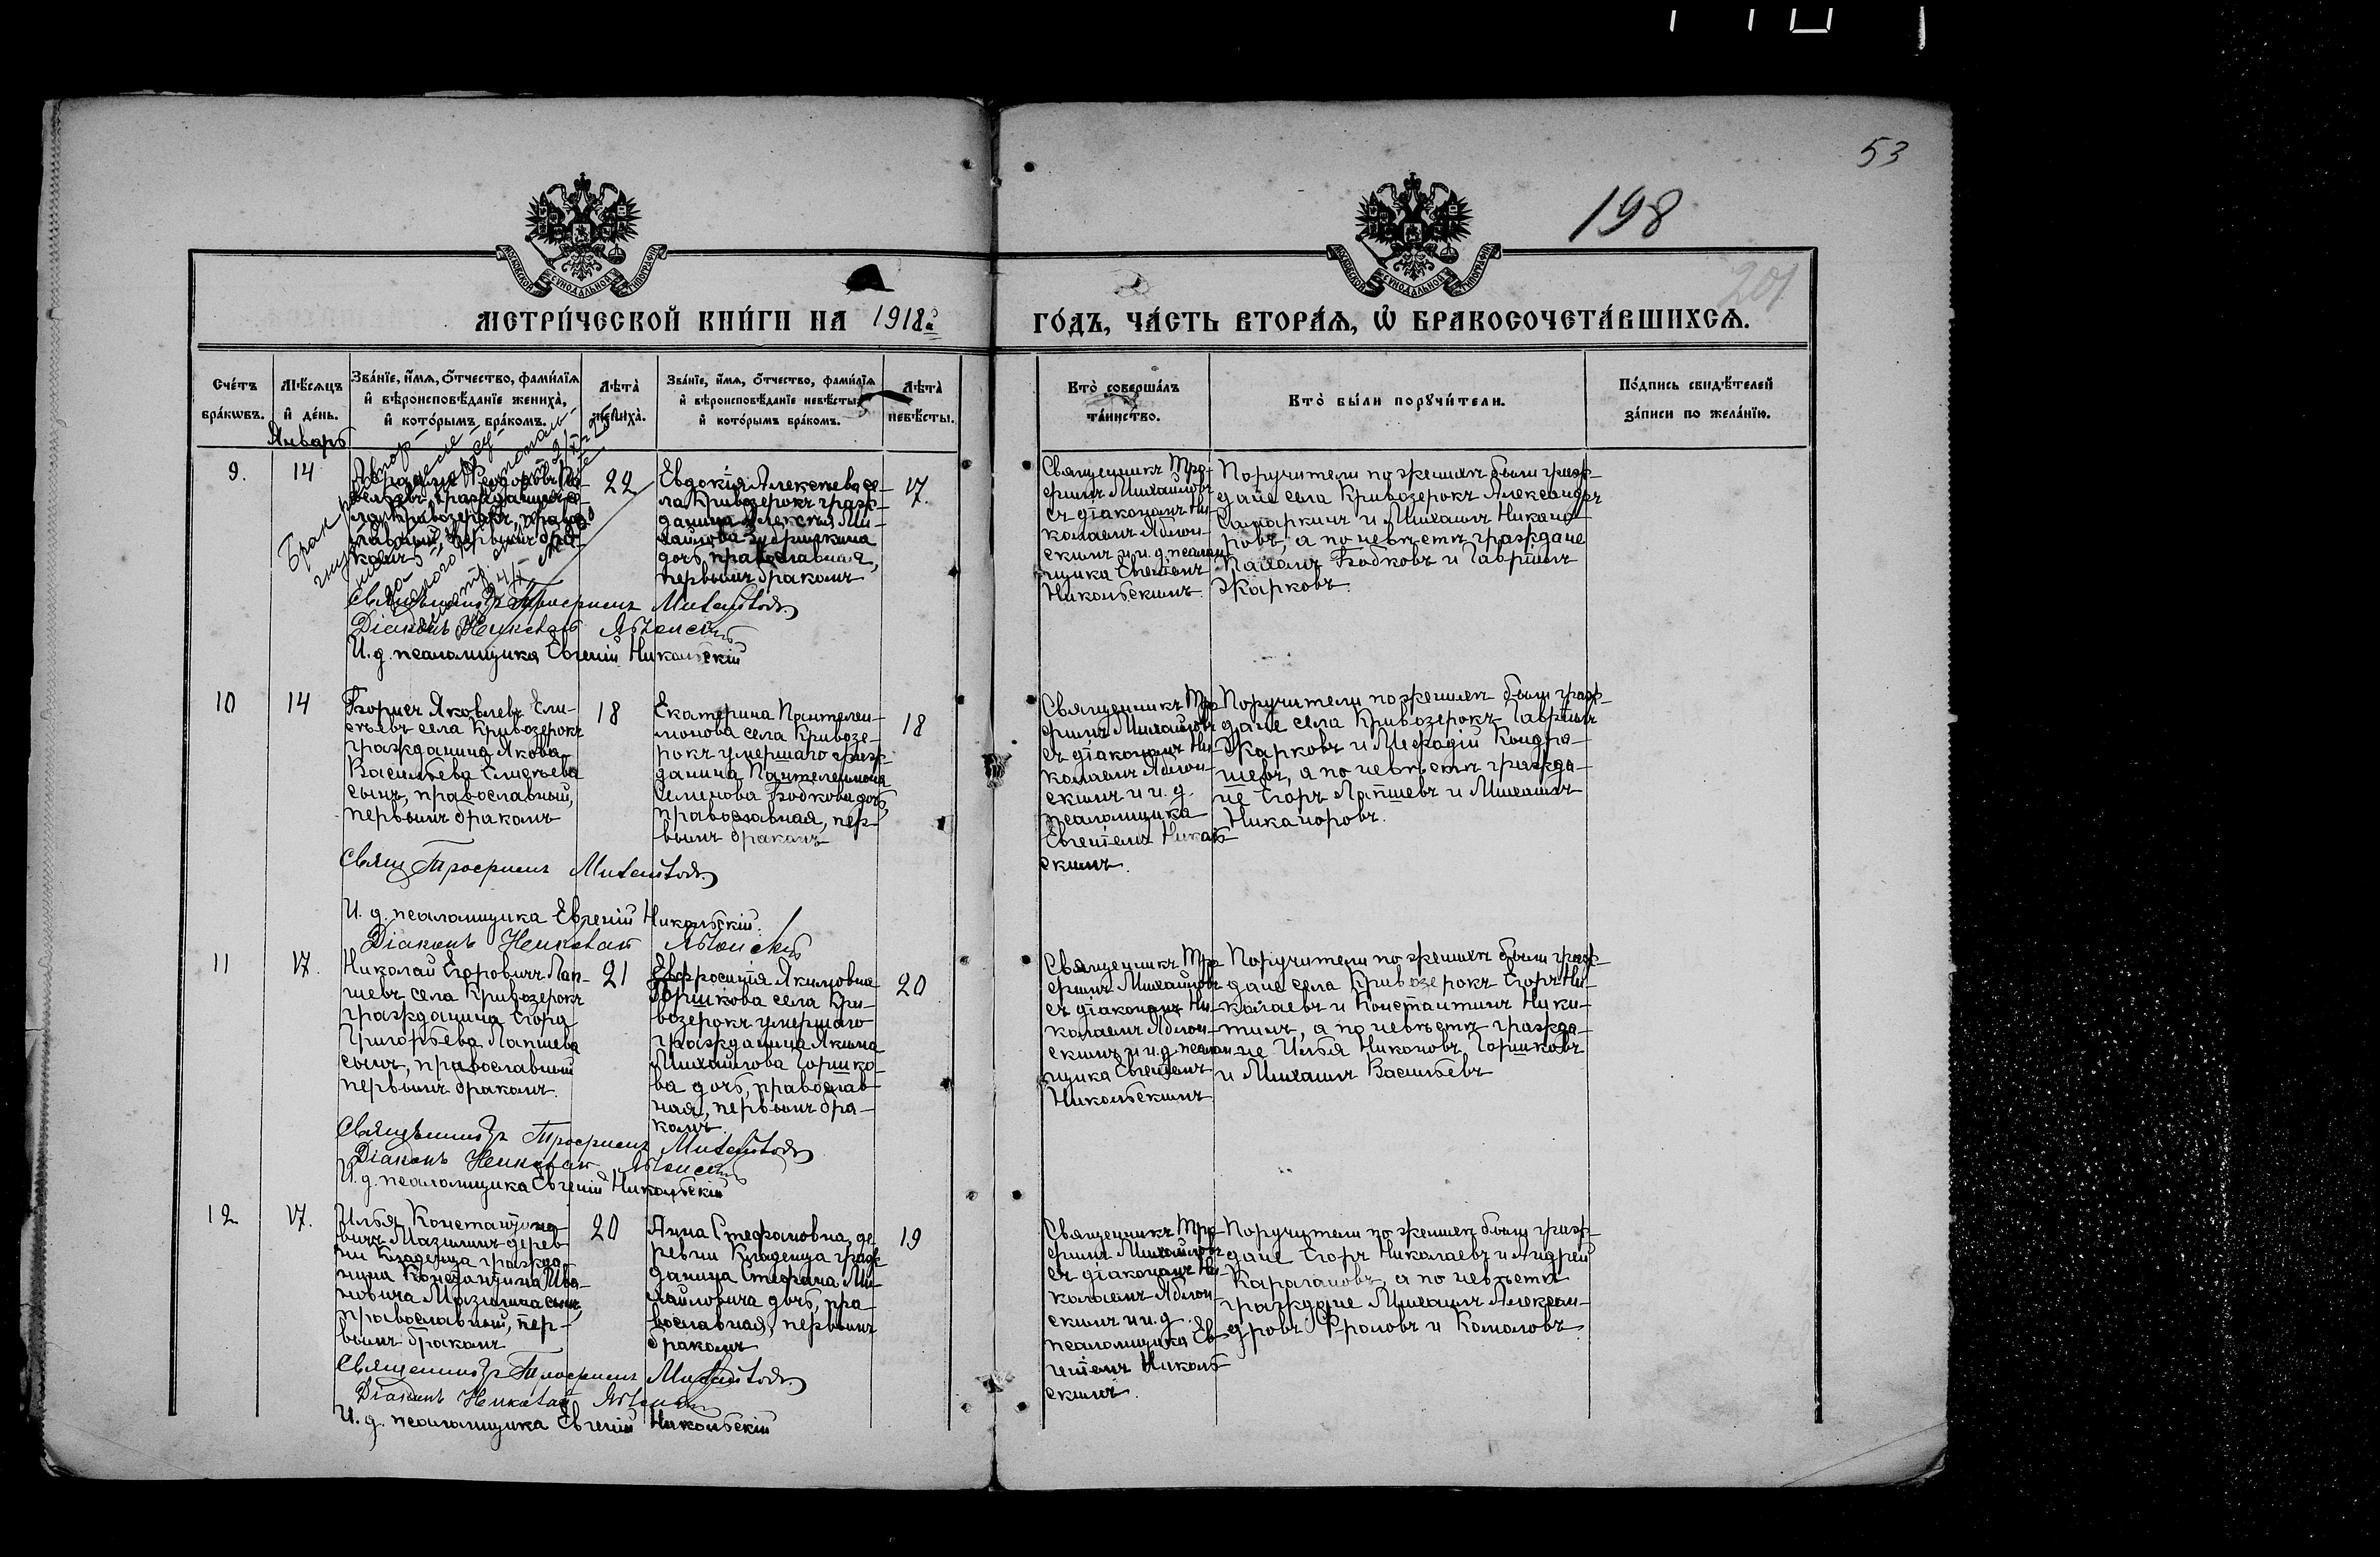 53
198
201
МОСКОВСКОЙ СѴНОДАЛЬНОЙ ТИПОГРАФІИ
МОСКОВСКОЙ СѴНОДАЛЬНОЙ ТИПОГРАФІИ
МЕТРИ́ЧЕСКОЙ КНИ́ГИ НА 1918 г.
ГО́ДЪ, ЧА́СТЬ ВТОРА́Я, Ѿ БРАКОСОЧЕТА́ВШИХСЯ.
Сче́тъ бра́кѡвъ.
Мѣ́сяцъ и҆ де́нь.
Зва́нїе, и҆́мя, о҆́тчество, фами́лїя и҆ вѣроисповѣ́данїе жениха̀, и҆ кото́рымъ бра́комъ.
Лѣ́та жениха̀.
Зва́нїе, и҆́мя, о҆́тчество, фами́лїя и҆ вѣроисповѣ́данїе невѣ́сты, и҆ кото́рымъ бра́комъ.
Лѣ́та невѣ́сты.
Кто̀ соверша́лъ та́инство.
Кто̀ бы́ли порꙋчи́тели.
По́дпись свидѣ́телей за́писи по жела́нїю.
Январь
9.
14
Брак
гражданинъ се-
ла Кривозерокъ, право-
славный, первымъ бра-
комъ
22
Евдокія Алексѣева се-
ла Кривозерокъ граж-
данина Алексѣя Ми-
хайлова
дочь, православная,
первымъ бракомъ
17.
Священникъ Тро-
фимъ Михайловъ
съ діакономъ Ни-
колаемъ Аблон-
скимъ и и. д. псалом-
щика Евгеніемъ
Никольскимъ.
Поручители по женихѣ были граж-
дане села Кривозерокъ Александръ
Самаркинъ и Михаилъ Никано-
ровъ, а по невѣстѣ граждане
Павелъ Бобковъ и Гавріилъ
Жарковъ.
Священникъ Трофимъ Михайловъ
Діаконъ Николай Аблонскій
И. д. псаломщика Евгеній Никольскій
10
14
Борисъ Яковлевъ Ели-
сѣевъ села Кривозерокъ
гражданина Якова
Васильева Елисѣева
сынъ, православный,
первымъ бракомъ
18
Екатерина Пантелеи-
монова села Кривозе-
рокъ умершаго граж-
данина Пантелеимона
Семенова Бобкова дочь,
православная, пер-
вымъ бракомъ
18
Священникъ Тро-
фимъ Михайловъ
съ діакономъ Ни-
колаемъ Аблон-
скимъ и и. д.
псаломщика
Евгеніемъ Николь-
скимъ.
Поручители по женихѣ были граж-
дане села Кривозерокъ Гавріилъ
Жарковъ и Мефодій Кондра-
шевъ, а по невѣстѣ гражда-
не Егоръ Лапшевъ и Михаилъ
Никаноровъ.
Свящ Трофимъ Михайловъ
И. д. псаломщика Евгеній Никольскій.
Діаконъ Николай Аблонскій
11
17.
Николай Егоровичъ Лап-
шевъ села Кривозерокъ
гражданина Егора
Григорьева Лапшева
сынъ, православный
первымъ бракомъ.
21
Евфросинія Якимовна
Горшкова села Кри-
возерокъ умершаго
гражданина Якима
Михайлова Горшко-
ва дочь, православ-
ная, первымъ бра-
комъ.
20
Священникъ Тро-
фимъ Михайловъ
съ діакономъ Ни-
колаемъ Аблон-
скимъ и и. д. псалом-
щика Евгеніемъ
Никольскимъ
Поручители по женихѣ были граж-
дане села Кривозерокъ Егоръ Ни-
колаевъ и Константинъ Ники-
тинъ, а по невѣстѣ гражда-
не Илья Никоновъ Горшковъ
и Михаилъ Васильевъ
Священникъ Трофимъ Михайловъ
Діаконъ Николай Аблонскій
И. д. псаломщика Евгеній Никольскій
12
17.
Илья Константино-
вичъ Мазилинъ дерев-
ни Кладенца гражда-
нина Константина Ива-
новича Мазилина сынъ,
православный, пер-
вымъ бракомъ
20
Анна Стефановна, де-
ревни Кладенца граж-
данина Стефана Ми-
хайловича дочь, пра-
вославная, первымъ
бракомъ
19
Священникъ Тро-
фимъ Михайловъ
съ діакономъ Ни-
колаемъ Аблон-
скимъ и и. д.
псаломщика Ев-
геніемъ Николь-
скимъ.
Поручители по женихѣ были граж-
дане Егоръ Николаевъ и Андрей
Каргановъ, а по невѣстѣ
граждане Михаилъ Алексан-
дровъ Фроловъ и Комоловъ
Священникъ Трофимъ Михайловъ
Діаконъ Николай Аблонскій
И. д. псаломщика Евгеній Никольскій